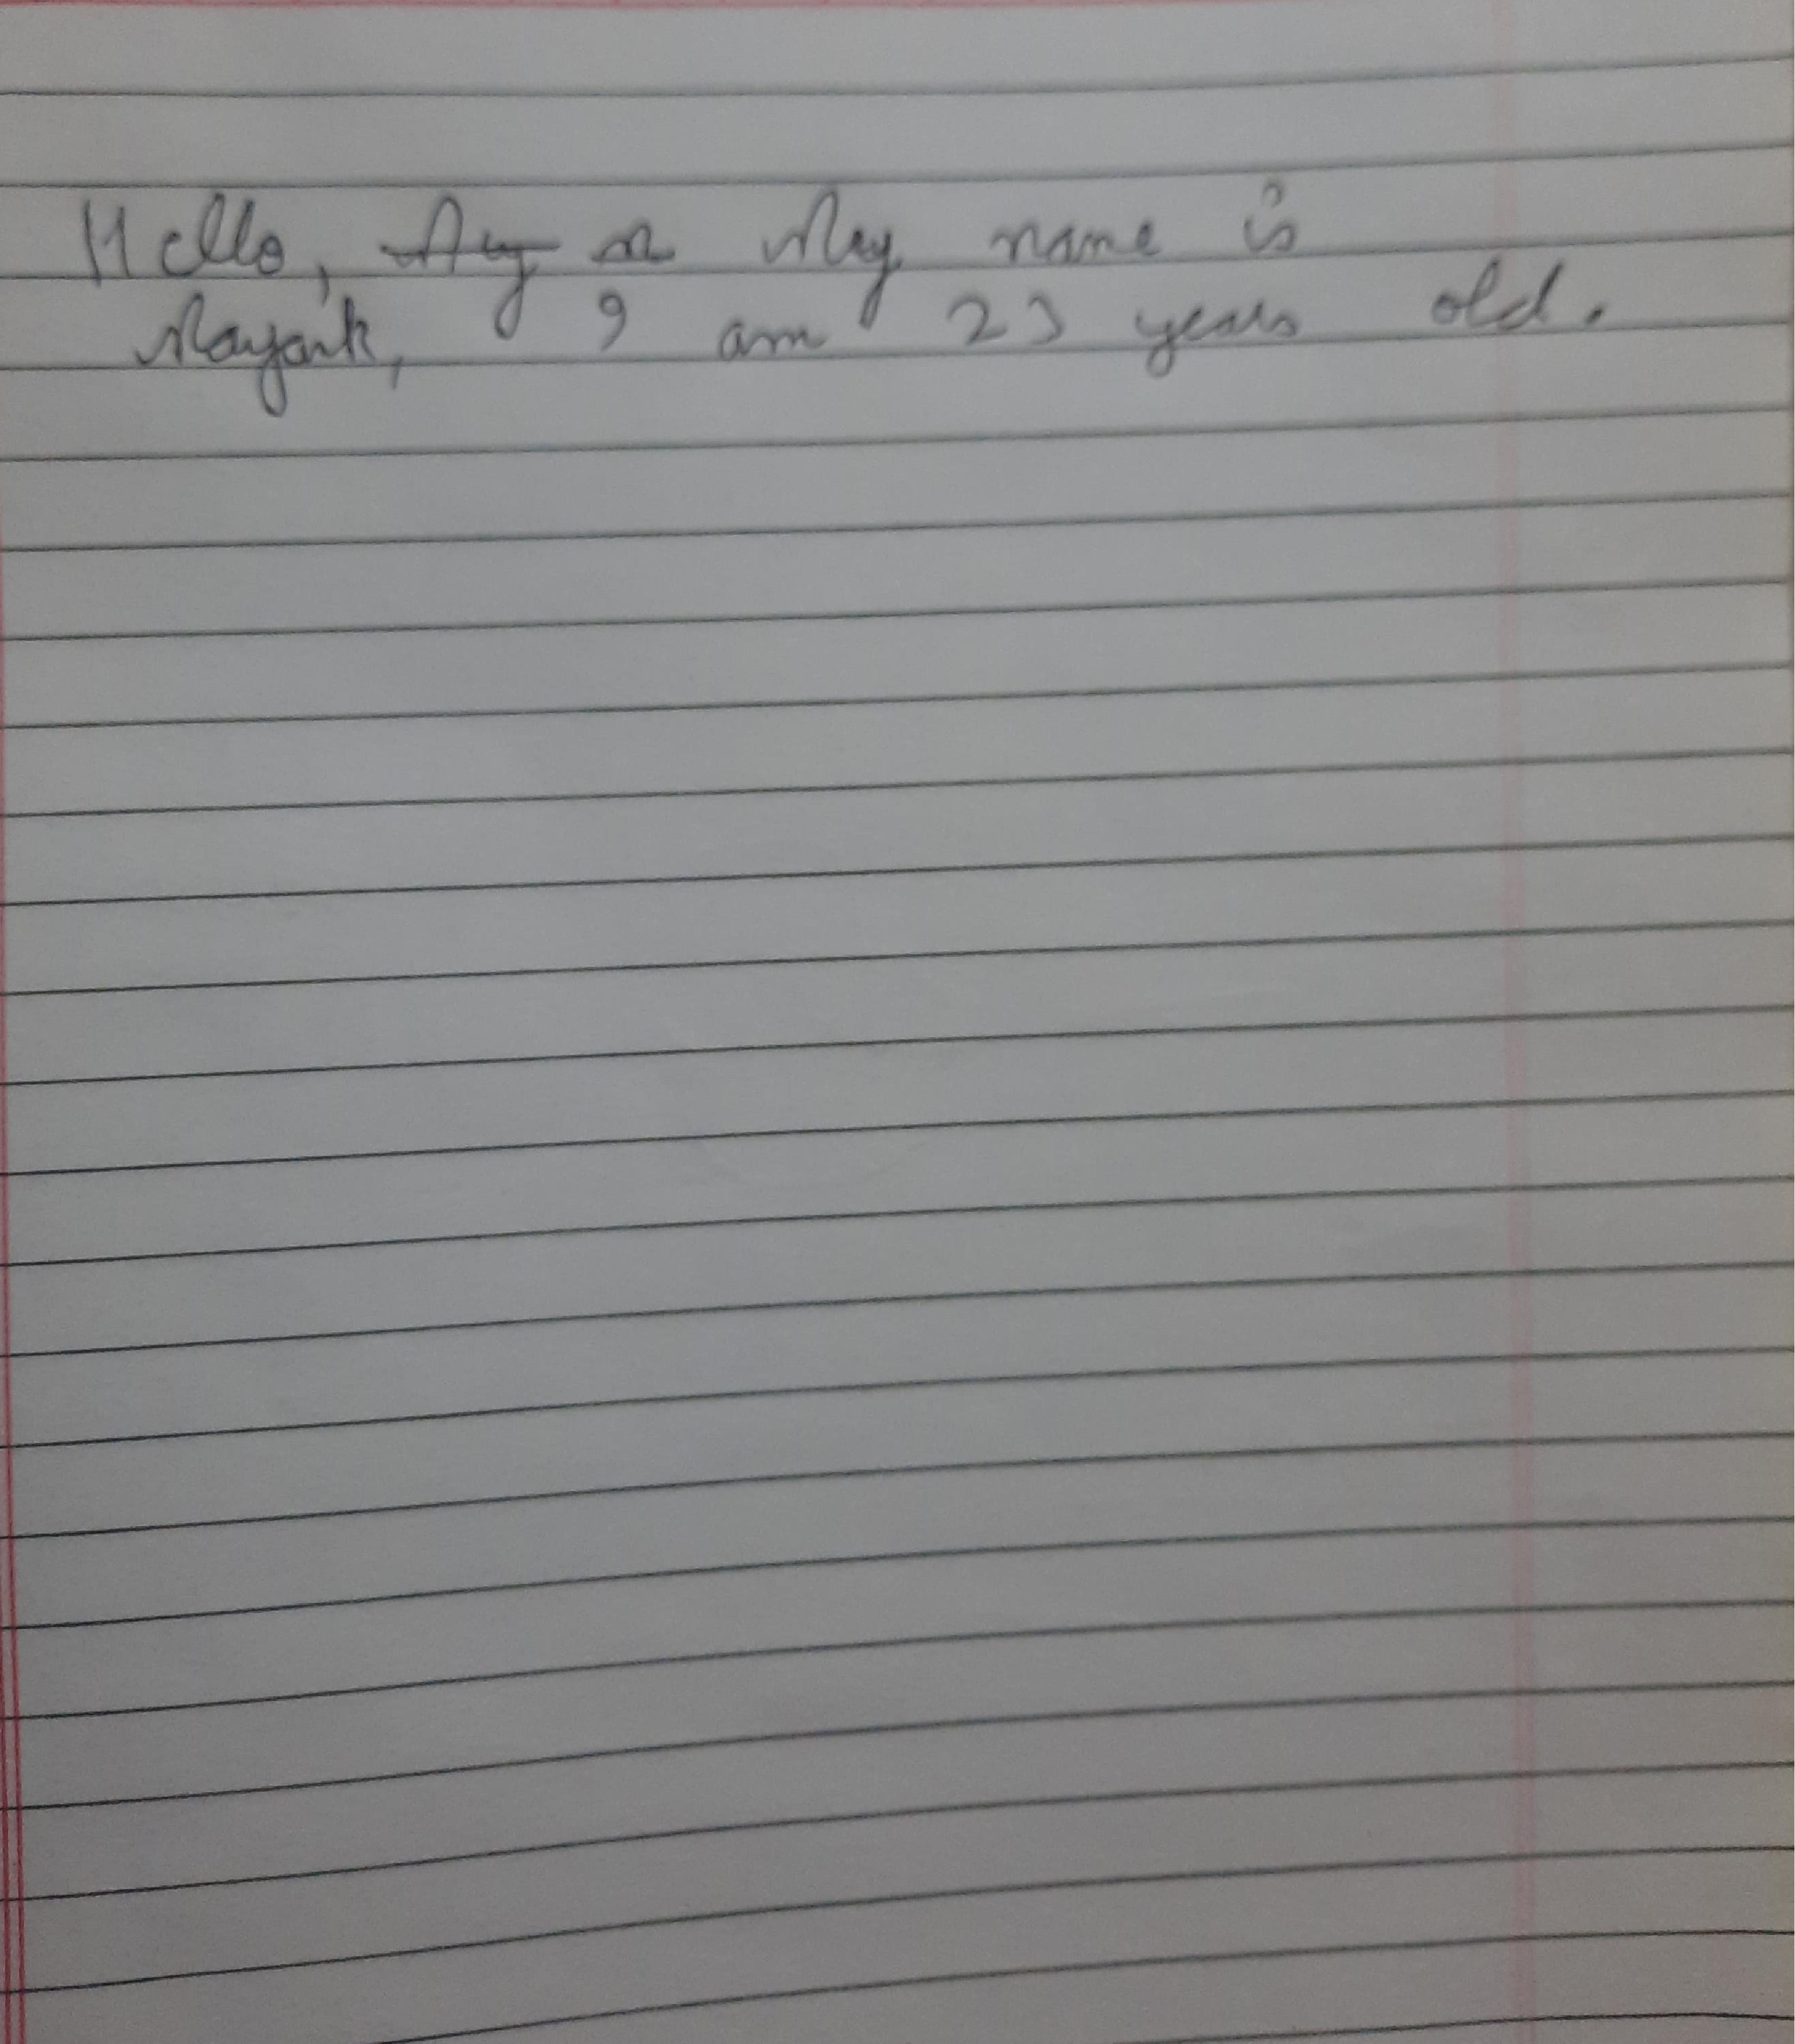 Hello, My name is
Mayank, I am 23 years old.